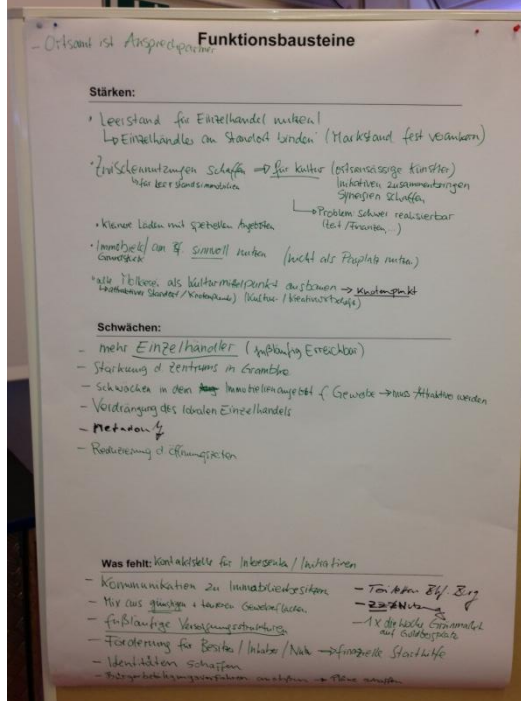 Funktionsbausteine
- Ortsamt ist Ansprechpartner
Stärken:
• Leerstand für Einzelhandel nutzen!
↳ Einzelhändler am Standort binden (Markstand fest verankern)
• Zwischennutzungen schaffen → für Kultur (ortsansässige Künstler)
↳ für Leerstandsimmobilien
Initiativen zusammenbringen
Synergien schaffen
↳ Problem: schwer realisierbar
(Zeit / Finanzen, ...)
• kleinere Läden mit speziellen Angeboten
• Immobilie / am sinnvoll nutzen (nicht als Parkplatz nutzen)
Grundstück
• alte Molkerei als Kulturmittelpunkt ausbauen → Knotenpunkt
↳ attraktiver Standort / Knotenpunkt) (Kultur- /
Schwächen:
- mehr Einzelhändler (fußläufig Erreichbar)
- Stärkung d. Zentrums in Grambke
- Schwächen in dem Immobilienangebot f. Gewerbe → muss Attraktiver werden
- Verdrängung des lokalen Einzelhandels
-
- Reduzierung d. Öffnungszeiten
Was fehlt: Kontaktstelle für Interessenten / Initiativen
- Kommunikation zu Immobilienbesitzern
- Mix aus günstigen + teureren Gewerbeflächen
- fußläufige Versorgungsstruktur
- Förderung für Besitzer / Inhaber / Nutzer → finanzielle Starthilfe
- Identitäten schaffen
- Bürgerbeteiligungsverfahren → Pläne
- Toiletten Bhf. Burg
-
- 1x die Woche
auf